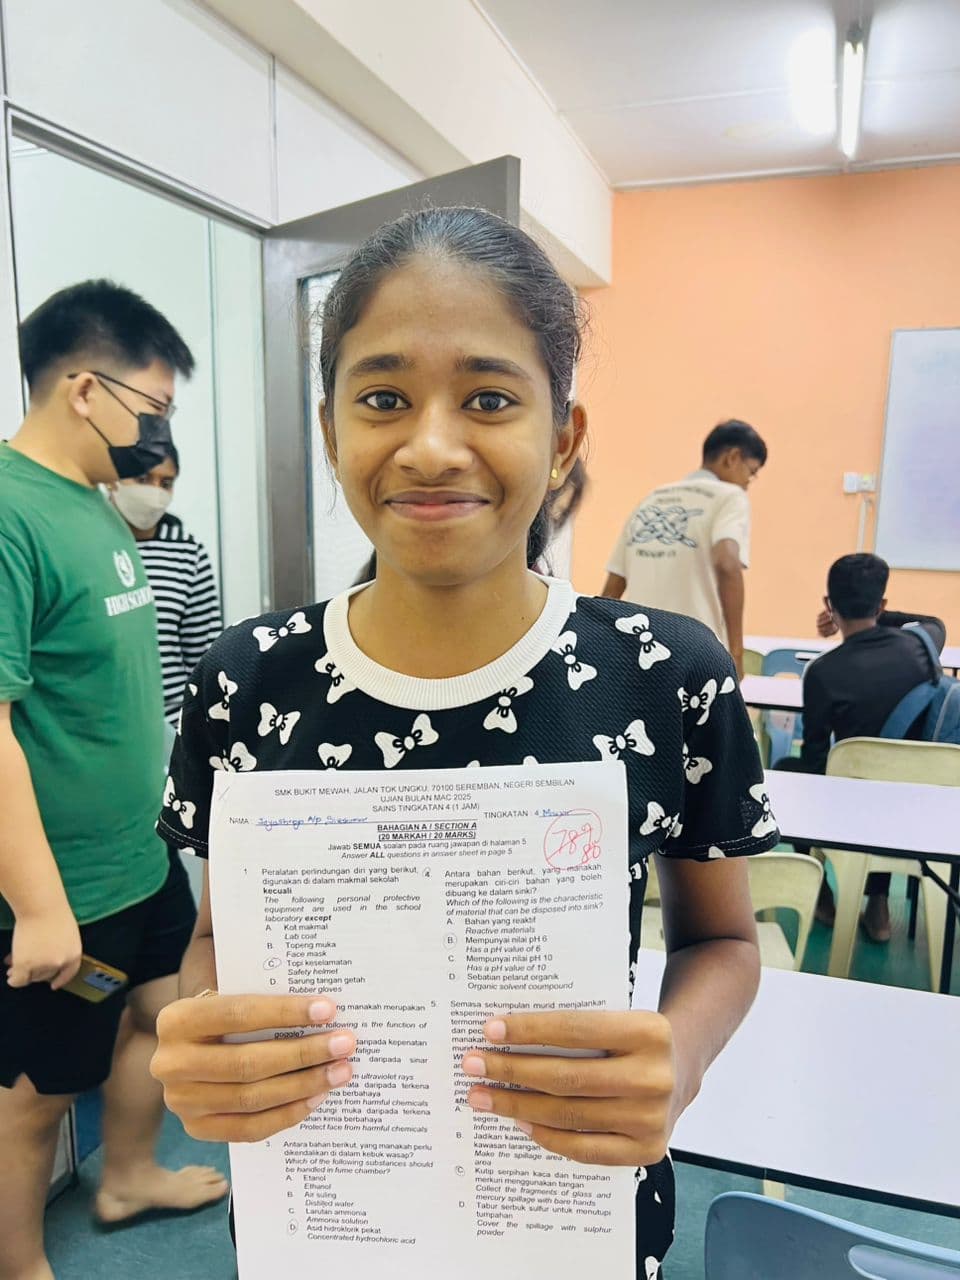 SMK BUKIT MEWAH, JALAN TOK UNGKU, 70100 SEREMBAN, NEGERI SEMBILAN
UJIAN BULAN MAC 2025
SAINS TINGKATAN 4 (1 JAM)
NAMA : A/p
TINGKATAN : 4
BAHAGIAN A / SECTION A
(20 MARKAH / 20 MARKS)
Jawab SEMUA soalan pada ruang jawapan di halaman 5
Answer ALL questions in answer sheet in page 5
80
1 Peralatan perlindungan diri yang berikut,
digunakan di dalam makmal sekolah
kecuali
The following personal protective
equipment are used in the school
laboratory except
A. Kot makmal
Lab coat
B. Topeng muka
Face mask
C. Topi keselamatan
Safety helmet
D. Sarung tangan getah
Rubber gloves
ng manakah merupakan
following is the function of
goggle?
daripada kepenatan
fatigue
ata daripada sinar
m ultraviolet rays
ata daripada terkena
mia berbahaya
eyes from harmful chemicals
ndungi muka daripada terkena
ahan kimia berbahaya
Protect face from harmful chemicals
3. Antara bahan berikut, yang manakah perlu
dikendalikan di dalam kebuk wasap?
Which of the following substances should
be handled in fume chamber?
A. Etanol
Ethanol
B. Air suling
Distilled water
C. Larutan ammonia
Ammonia solution
D. Asid hidroklorik pekat
Concentrated hydrochloric acid
4 Antara bahan berikut, yang manakah
merupakan ciri-ciri bahan yang boleh
dibuang ke dalam sinki?
Which of the following is the characteristic
of material that can be disposed into sink?
A. Bahan yang reaktif
Reactive materials
B. Mempunyai nilai pH 6
Has a pH value of 6
C. Mempunyai nilai pH 10
Has a pH value of 10
D. Sebatian pelarut organik
Organic solvent coumpound
5. Semasa sekumpulan murid menjalankan
eksperimen
termomet
dan pec
manakah
murid tersebut?
dropped onto the
A.
segera
Inform the
B. Jadikan kawas
kawasan larangan
Make the spillage area a
area
C. Kutip serpihan kaca dan tumpahan
merkuri menggunakan tangan
Collect the fragments of glass and
mercury spillage with bare hands
D. Tabur serbuk sulfur untuk menutupi
tumpahan
Cover the spillage with sulphur
powder
HIGH SCHOO